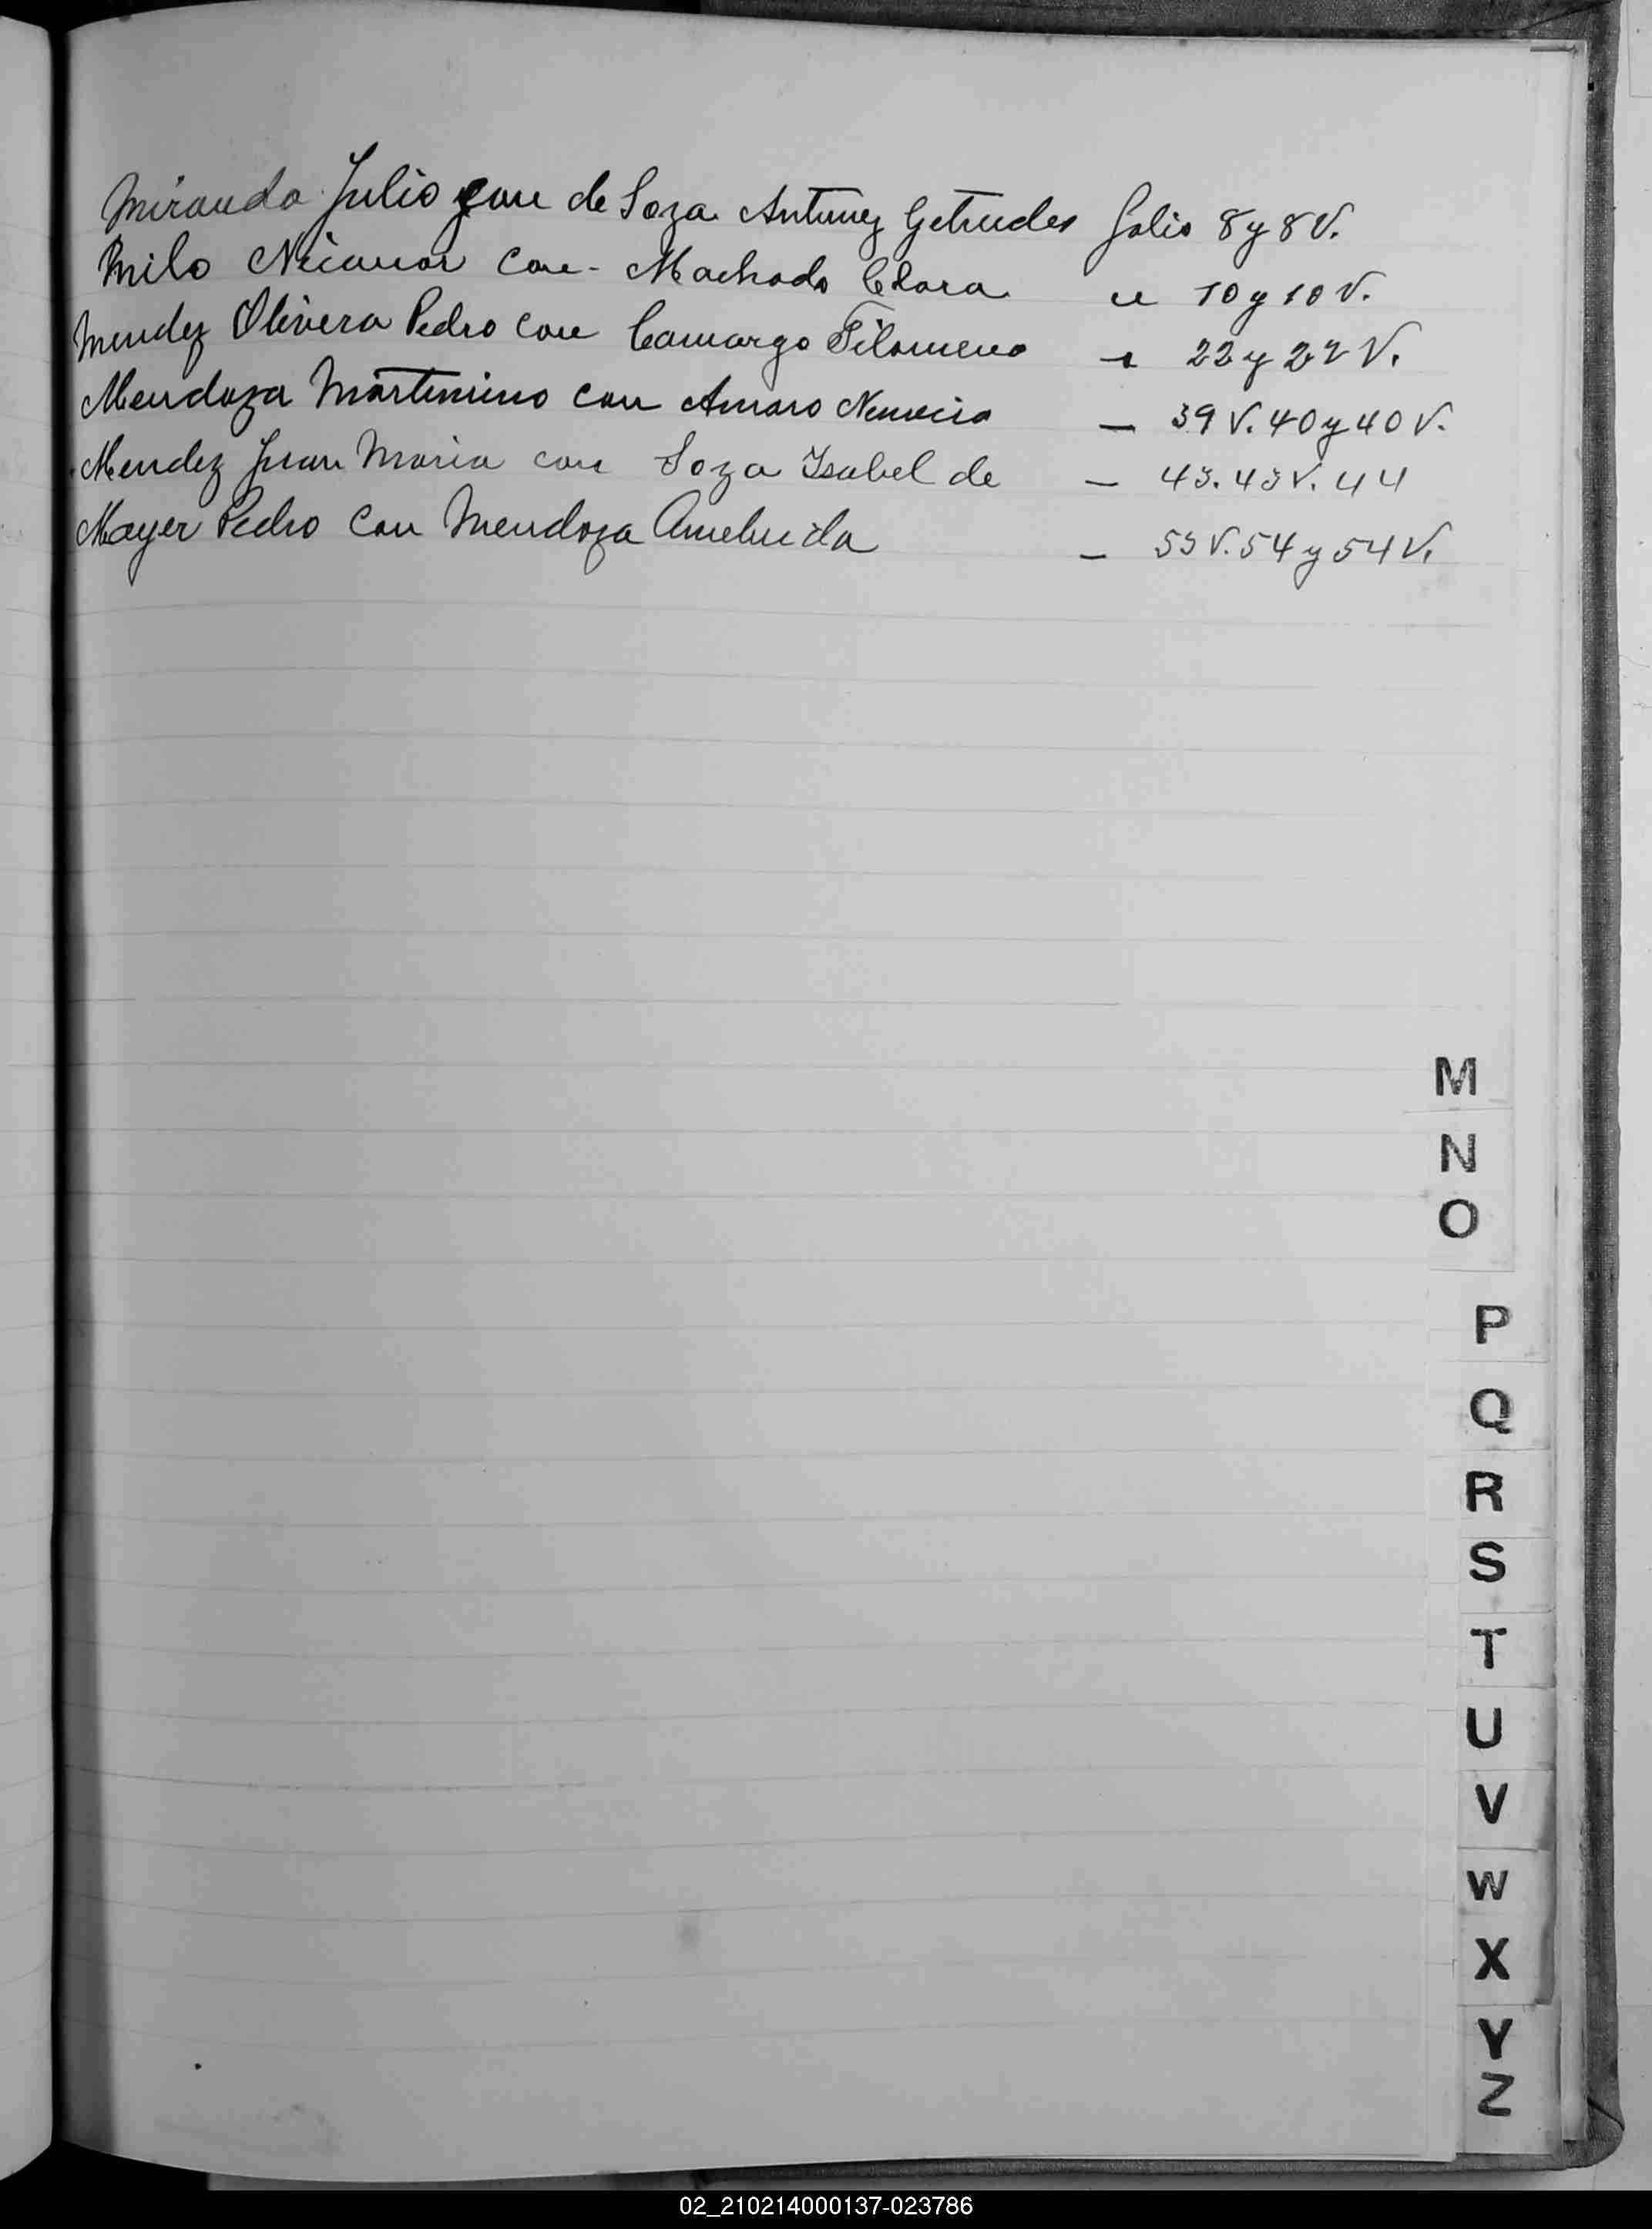 Miranda Julio con de Soza Antunez Getrudes folio 8 y 8 V.
Milo Nicanor con - Machado Clara " 10 y 10 V.
Mendez Olivera Pedro con Camargo Filomena " 22 y 22 V.
Mendoza Martiniino con Amaro Nemecia — 39 V. 40 y 40 V.
Mendez Juan Maria con Soza Isabel de — 43. 43 V. 44
Mayer Pedro con Mendoza — 53 V. 54 y 54 V.
M
N
O
P
Q
R
S
T
U
V
W
X
Y
Z
02_210214000137-023786